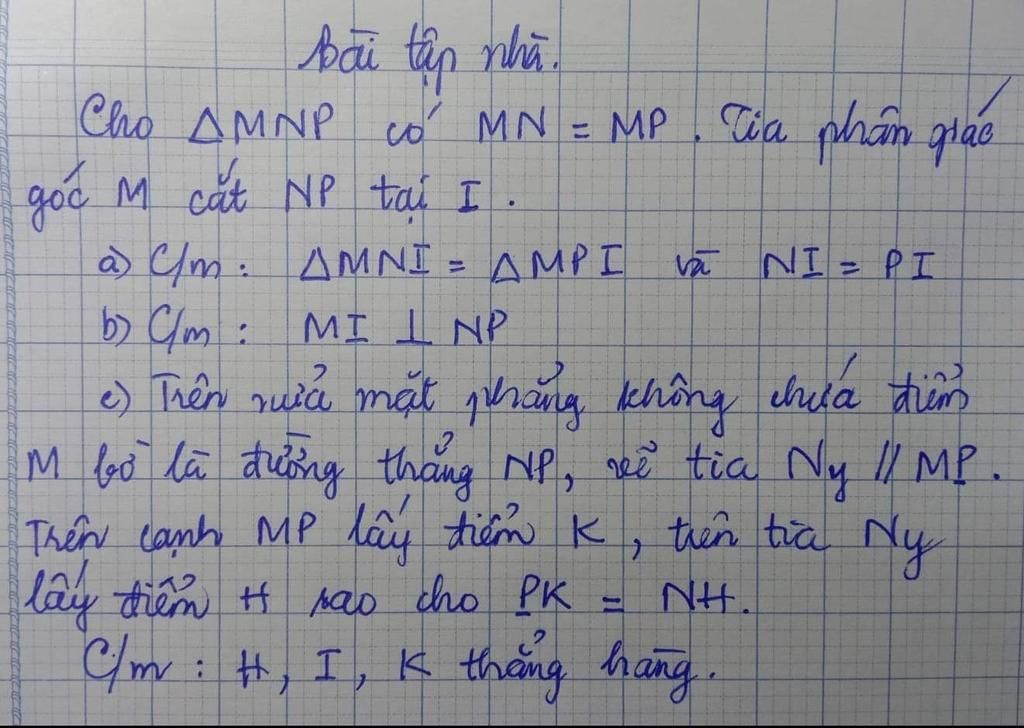 Bài tập nhà.
Cho ΔMNP có MN = MP. Tia phân giác
góc M cắt NP tại I.
a) C/m: ΔMNI = ΔMPI và NI = PI
b) C/m: MI ⊥ NP
c) Trên nửa mặt phẳng không chứa điểm
M bờ là đường thẳng NP, vẽ tia Ny // MP.
Trên cạnh MP lấy điểm K, trên tia Ny
lấy điểm H sao cho PK = NH.
C/m: H, I, K thẳng hàng.